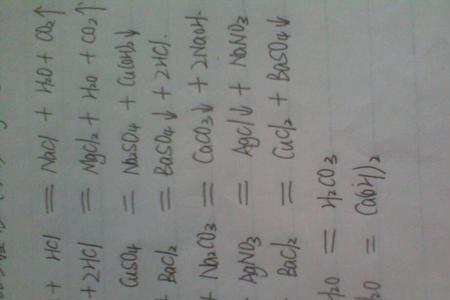 + HCl = NaCl + H2O + CO2↑
+ 2HCl = MgCl2 + H2O + CO2↑
CuSO4 = Na2SO4 + Cu(OH)2↓
+ BaCl2 = BaSO4↓ + 2HCl.
+ Na2CO3 = CaCO3↓ + 2NaOH.
AgNO3 = AgCl↓ + NaNO3
BaCl2 = CuCl2 + BaSO4↓
H2O = H2CO3
= Ca(OH)2